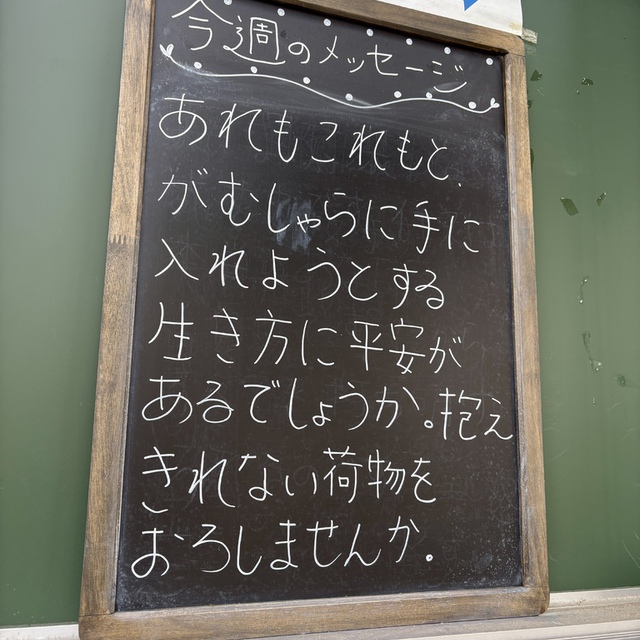 今週のメッセージ
あれもこれもと、
がむしゃらに手に
入れようとする
生き方に平安が
あるでしょうか。抱え
きれない荷物を
おろしませんか。